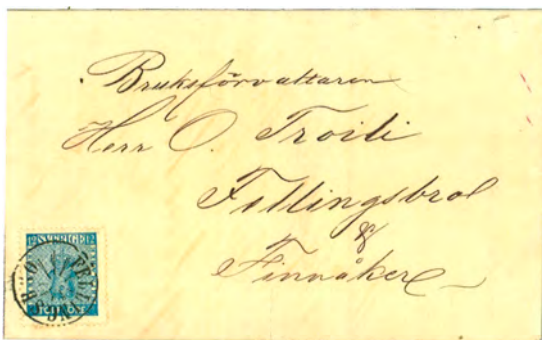 Bruksförvaltaren
Herr O. Troili
Fellingsbro
&
Finnåker
12 SVERIGE 12